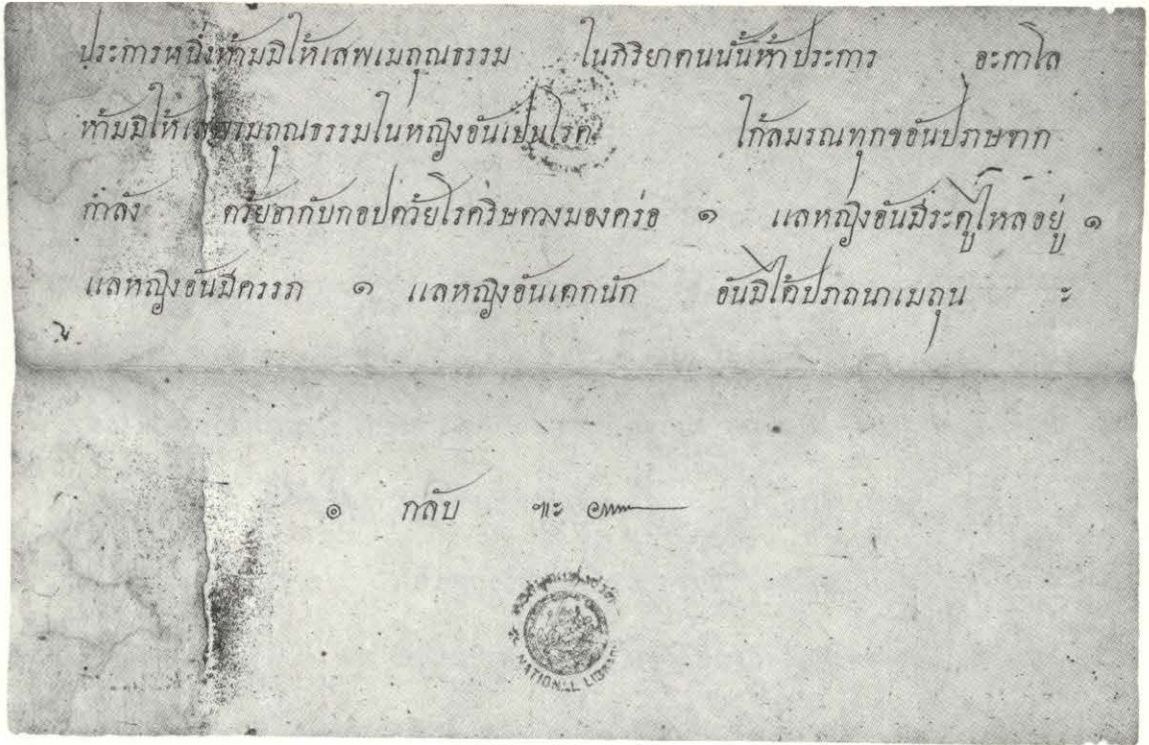 ประการหนึ่งห้ามมิให้เสพเมถุณธรรม ในกิริยาคนนั้นห้าประการ อะกาโล
ห้ามมิให้เสพเมถุณธรรมในหญิงอันเปนโรค ไก้ลมรณทุกขอันปราษจาก
กำลัง ด้วยชากับกอปด้วยโรคริษดวงมองคร่อ ๑ แลหญิงอันมีระดูไหลอยู่ ๑
แลหญิงอันมีครรภ ๑ แลหญิงอันเดกนัก อันมิได้ปรถนาเมถุน ะ
๏ กลับ ๚ะ๛
NATIONAL LIBRARY